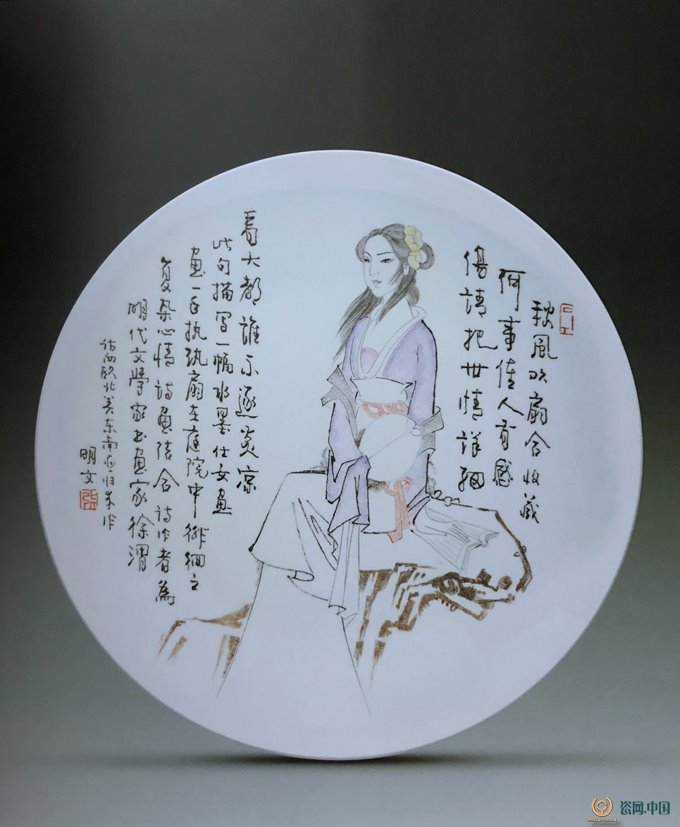 秋風扇合收藏
何事佳人有感
傷請把世情詳細
看大都誰不逐炎凉
此句描写一幅水墨仕女畫
畫一手执纨扇在庭院中徘徊之
复杂心情詩畫结合詩作者為
明代文學家书畫家徐渭
东南
明文
瓷网.中国